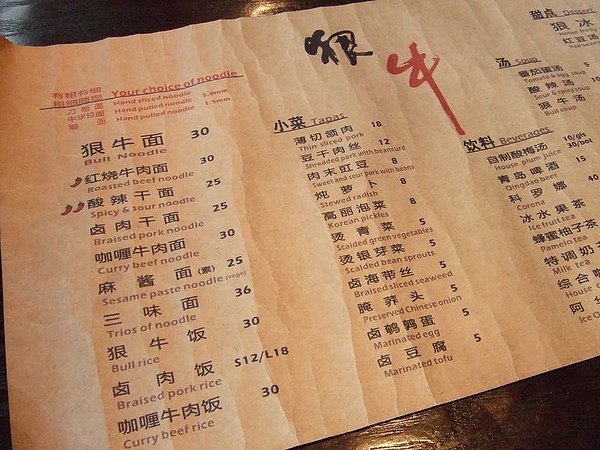 狠牛
有粗有细
粗细随您 Your choice of noodle
刀削面 Hand sliced noodle 5.0mm
中华拉面 Hand pulled noodle
细面 Hand pulled noodle 1.5mm
狠牛面 30
Bull Noodle
红烧牛肉面 30
Roasted beef noodle
酸辣干面 25
Spicy & sour noodle
卤肉干面 25
Braised pork noodle
咖喱牛肉面 30
Curry beef noodle
麻酱面(素) 25
Sesame paste noodle (vege)
三味面 36
Trios of noodle
狠牛饭 30
Bull rice
卤肉饭 S12/L18
Braised pork rice
咖喱牛肉饭 30
Curry beef rice
小菜 Tapas
薄切颈肉 18
Thin sliced pork
豆干肉丝 12
Shredded pork with beancurd
肉末豇豆 8
Sweet and sour pork with beans
炖萝卜 8
Stewed radish
高丽泡菜 8
Korean pickles
烫青菜 5
Scalded green vegetables
烫银芽菜 5
Scalded bean sprouts
卤海带丝 5
Braised sliced seaweed
腌荞头 5
Preserved Chinese onion
卤鹌鹑蛋 5
Marinated egg
卤豆腐 5
Marinated tofu
甜点 Dessert
狠冰
House
红豆汤
Red bean
汤 Soup
番茄蛋汤 5
Tomato & egg soup
酸辣汤 10
Sour & spicy soup
狠牛汤
Bull soup
饮料 Beverages
自制酸梅汤 10/gls
House plum juice 30/bot
青岛啤酒 15
Qingdao beer
科罗娜 40
Corona
冰水果茶
Ice fruit tea
蜂蜜柚子茶
Pamelo tea
特调奶
Milk tea
综合
House
阿
Ice